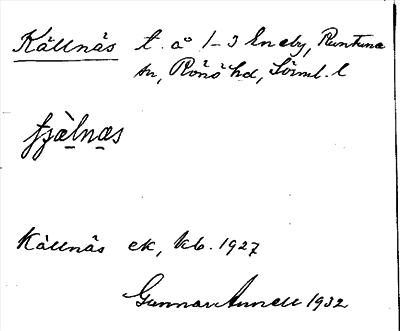 Källnäs t. å 1-3 Eneby, Runtuna
sn, Rönö hd, Sörml. l
fjälnäs
Källnäs ek, kb. 1927
Gunnar Annell 1932